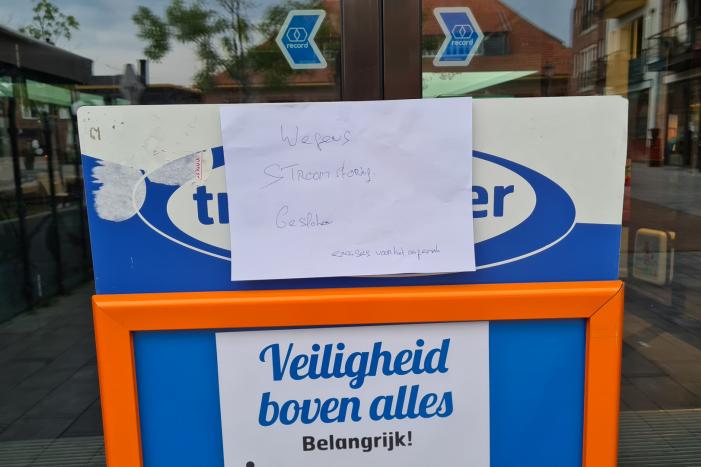 record
record
Wegens
STroomstoring
Gesloten
excuses voor het ongemak
tr er
Veiligheid
boven alles
Belangrijk!